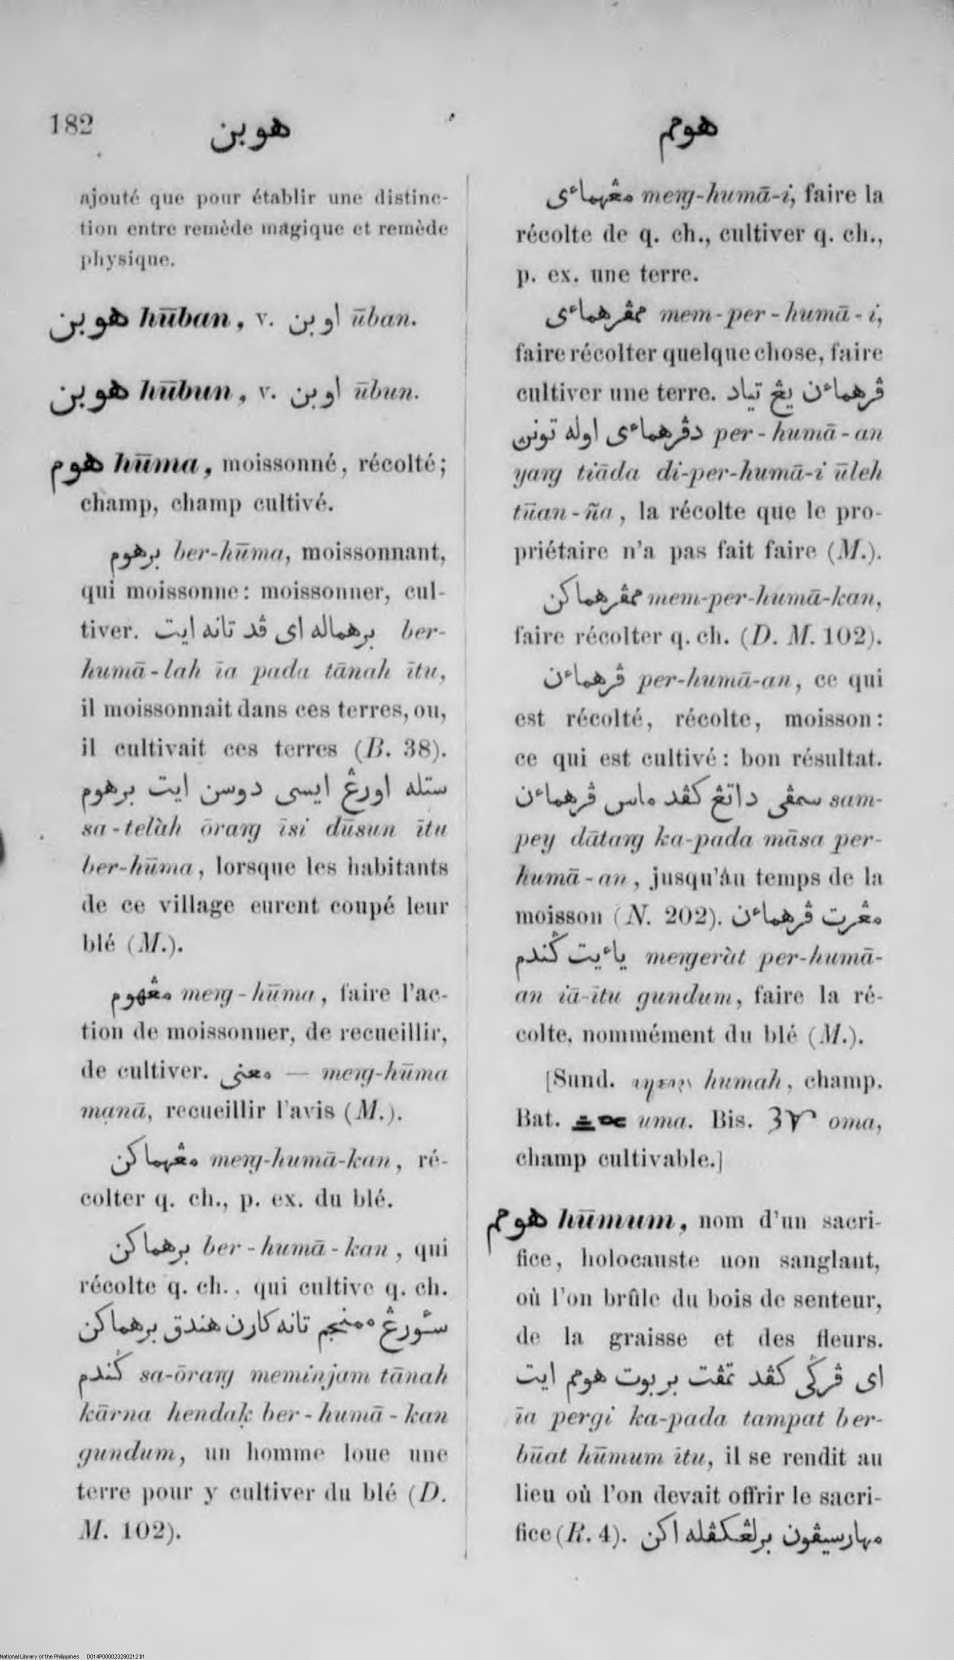 182
هوبن
هومم
ajouté que pour établir une distinc-
tion entre remède magique et remède
physique.
هوبن hūban, v. اوبن ūban.
هوبن hūbun, v. اوبن ūbun.
هوم hūma, moissonné, récolté;
champ, champ cultivé.
برهوم ber-hūma, moissonnant,
qui moissonne: moissonner, cul-
tiver. برهماله اى ڤد تانه ايت ber-
humā-lah īa pada tānah ītu,
il moissonnait dans ces terres, ou,
il cultivait ces terres (B. 38).
ستله اورڠ ايسى دوسن ايت برهوم
sa-telàh ōrarg īsi dūsun ītu
ber-hūma, lorsque les habitants
de ce village eurent coupé leur
blé (M.).
مڠهوم merg-hūma, faire l'ac-
tion de moissonner, de recueillir,
de cultiver. معنى — merg-hūma
manā, recueillir l'avis (M.).
مڠهماكن merg-humā-kan, ré-
colter q. ch., p. ex. du blé.
برهماكن ber-humā-kan, qui
récolte q. ch., qui cultive q. ch.
سئورڠ ممنجم تانه كارن هندق برهماكن
ݢندم sa-ōrarg meminjam tānah
kārna hendaḳ ber-humā-kan
gundum, un homme loue une
terre pour y cultiver du blé (D.
M. 102).
مڠهماءى merg-humā-i, faire la
récolte de q. ch., cultiver q. ch.,
p. ex. une terre.
ممڤرهماءى mem-per-humā-i,
faire récolter quelque chose, faire
cultiver une terre. ڤرهماءن يڠ تياد
دڤرهماءى اوله تونن per-humā-an
yarg tiāda di-per-humā-i ūleh
tūan-ña, la récolte que le pro-
priétaire n'a pas fait faire (M.).
ممڤرهماكن mem-per-humā-kan,
faire récolter q. ch. (D. M. 102).
ڤرهماءن per-humā-an, ce qui
est récolté, récolte, moisson:
ce qui est cultivé: bon résultat.
سمڤى داتڠ كڤد ماس ڤرهماءن sam-
pey dātarg ka-pada māsa per-
humā-an, jusqu'àu temps de la
moisson (N. 202). مڠرت ڤرهماءن
ياءيت ݢندم mergeràt per-humā-
an iā-ītu gundum, faire la ré-
colte, nommément du blé (M.).
[Sund. humah, champ.
Bat. uma. Bis. oma,
champ cultivable.]
هومم hūmum, nom d'un sacri-
fice, holocauste non sanglant,
où l'on brûle du bois de senteur,
de la graisse et des fleurs.
اى ڤرݢى كڤد تمڤت بربوت هومم ايت
īa pergi ka-pada tampat ber-
būat hūmum ītu, il se rendit au
lieu où l'on devait offrir le sacri-
fice (R. 4). مهارسيڤون برلڠكڤله اكن
National Library of the Philippines